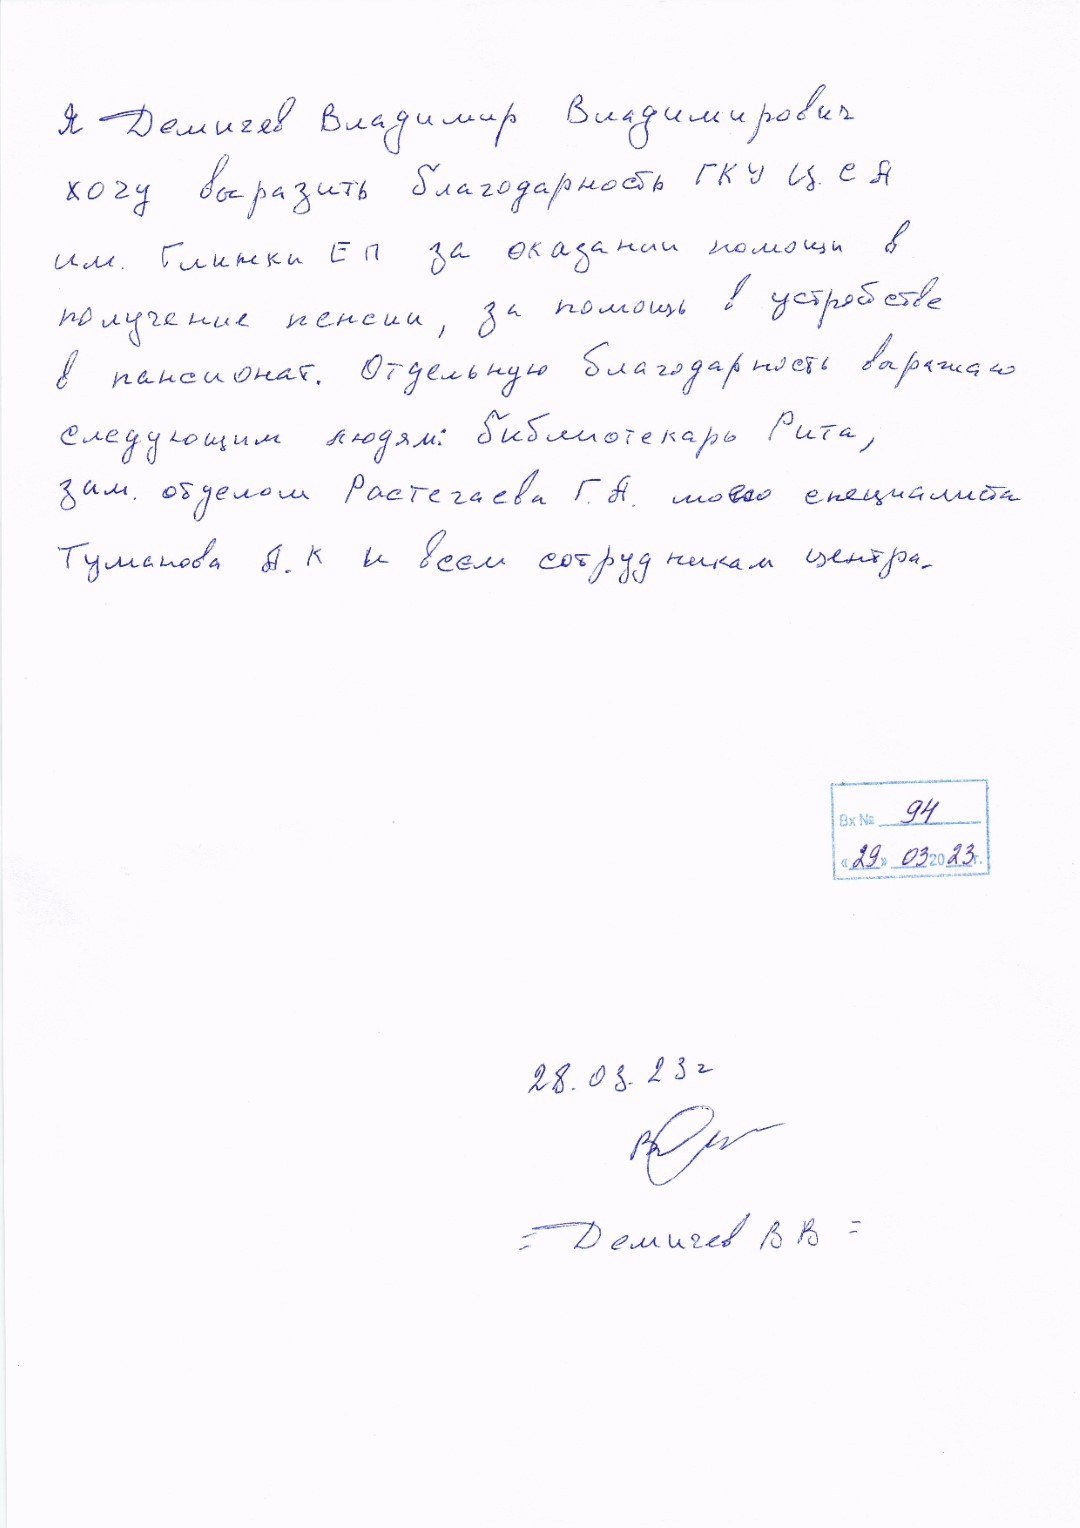 Я Демичев Владимир Владимирович
хочу выразить благодарность ГКУ Ц. С А
им. Глинки ЕП за оказании помощи в
получение пенсии, за помощь в устройстве
в пансионат. Отдельную благодарность варажаю
следующим людям: библиотекарь Рита,
зам. отделом Растегаева Г. А. моего специалиста
Туманова А. К и всем сотрудникам центра.
Вх № 94
«29» 03 2023г.
28.03.23 г
= Демичев В В =